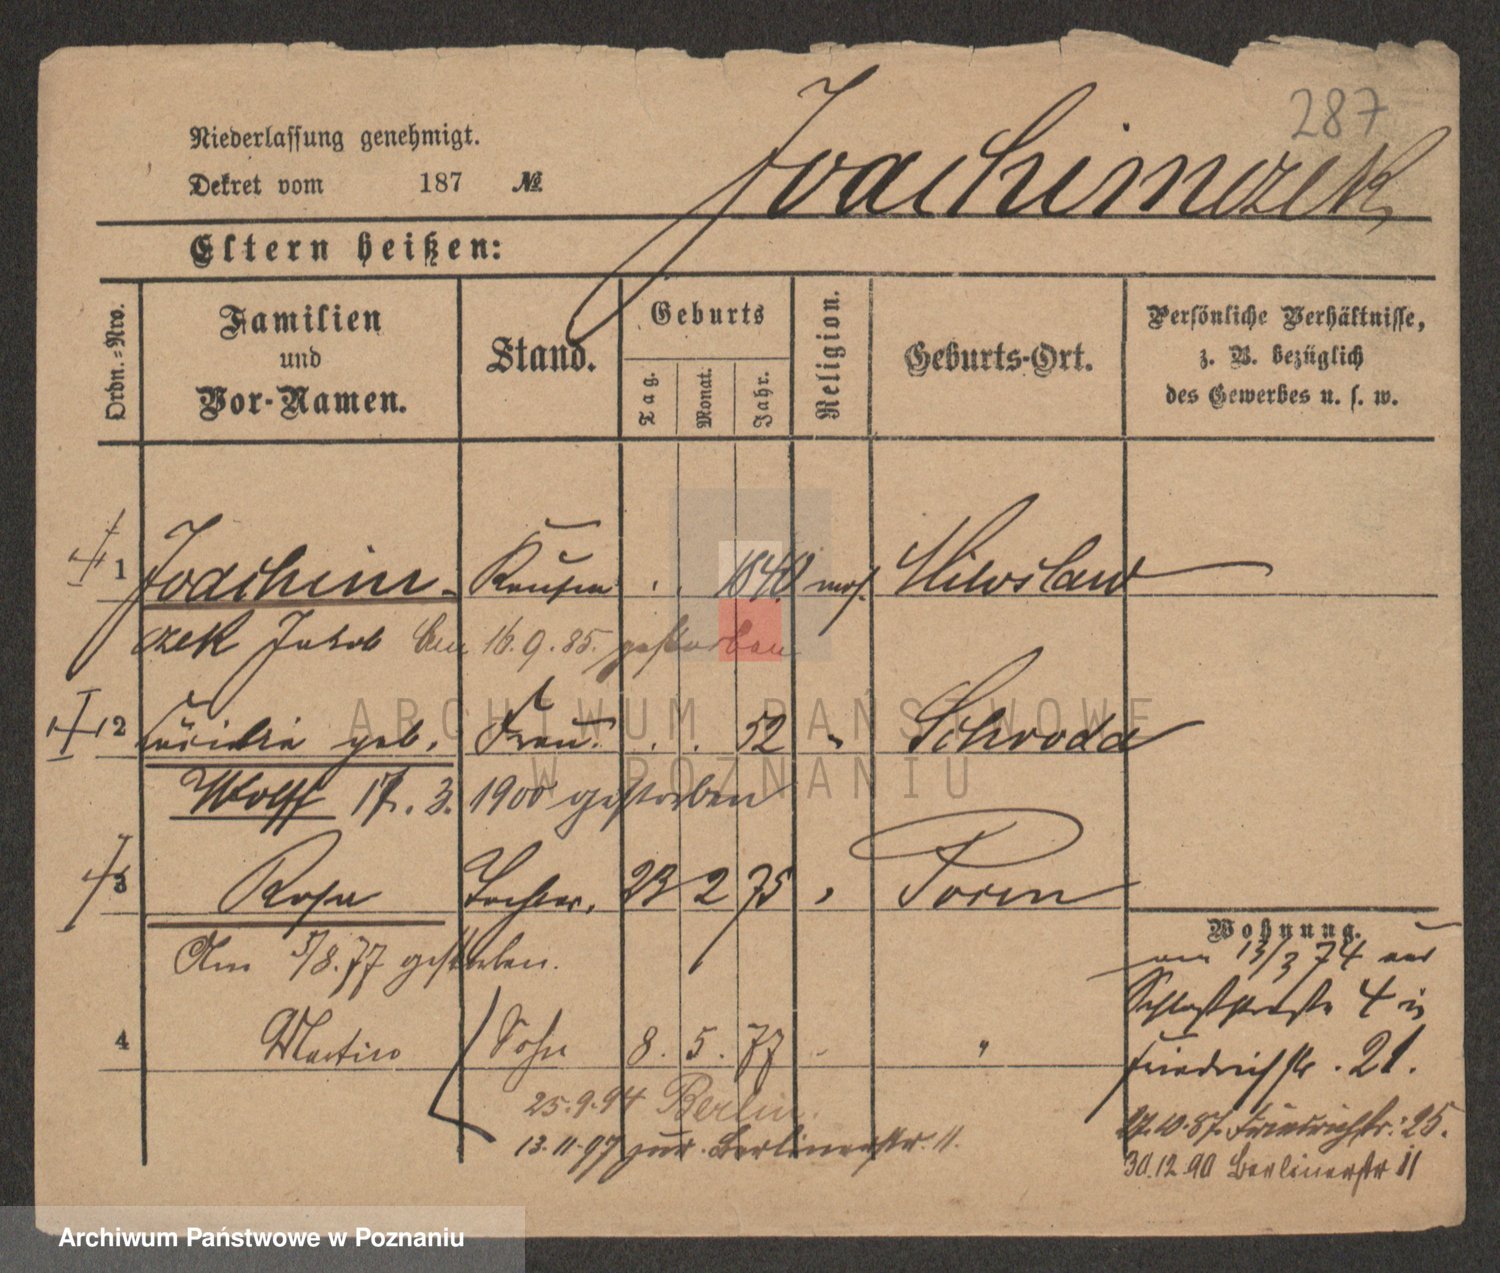 287
Joachimczek
Niederlassung genehmigt.
Dekret vom 187 №
Eltern heißen:
Ordn.=Nro.
Familien
und
Vor-Namen.
Stand.
Geburts
Tag.
Monat.
Jahr.
Religion.
Geburts-Ort.
Persönliche Verhältnisse,
z. B. bezüglich
des Gewerbes u. s. w.
1 Joachim- Kaufm . . 1840 mos. Miloslaw
czek Jakob Am 16.9.85. gestorben
2 Cäcilia geb. Frau. . . 52 " Schroda
Wolff 17. 3. 1900 gestorben
3 Rosa Tochter. 23 2 75 " Posen
Am 5/8.77 gestorben.
4 Martin Sohn 8. 5. 77 " "
25.9.94 Berlin.
13.11.97 zur. Berlinerstr. 11.
Wohnung.
am 13/3 74 aus
Schloßstraße 4 in
Friedrichstr. 21.
27.10.87. Friedrichstr. 25.
30.12.90 Berlinerstr 11
ARCHIWUM PAŃSTWOWE
W POZNANIU
Archiwum Państwowe w Poznaniu